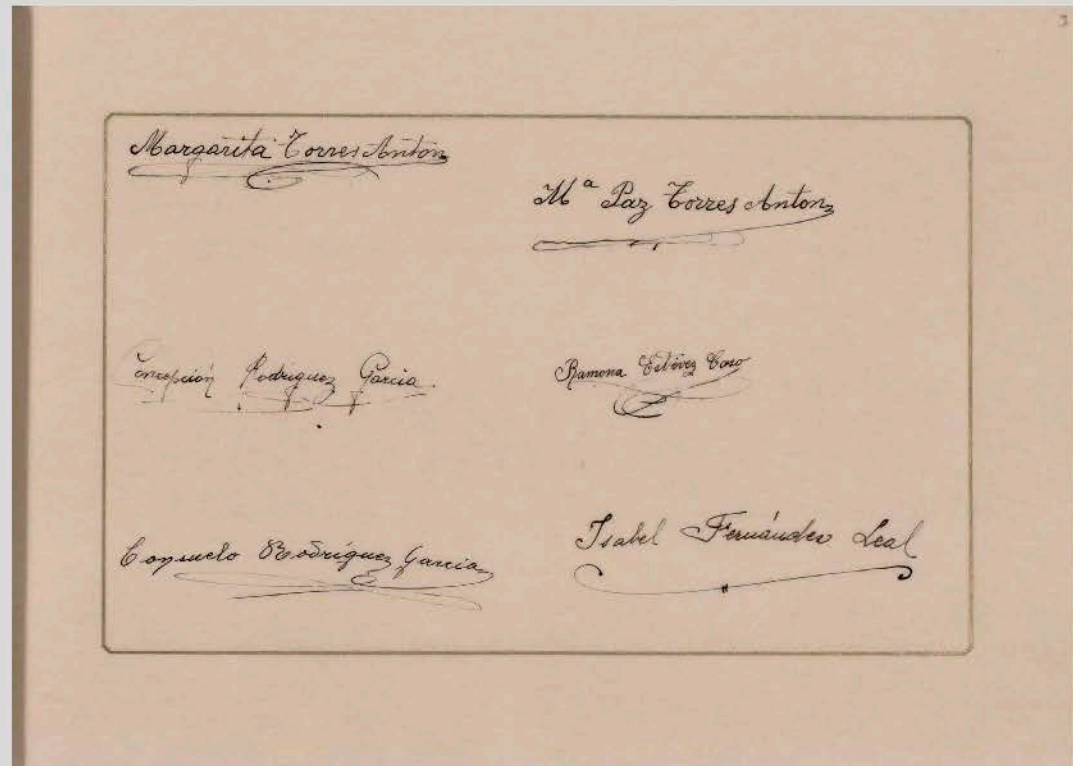 3
Margarita Torres Antón
Mª Paz Torres Anton
Concepción Rodríguez García.
Ramona Estévez
Consuelo Rodríguez García
Isabel Fernández Leal